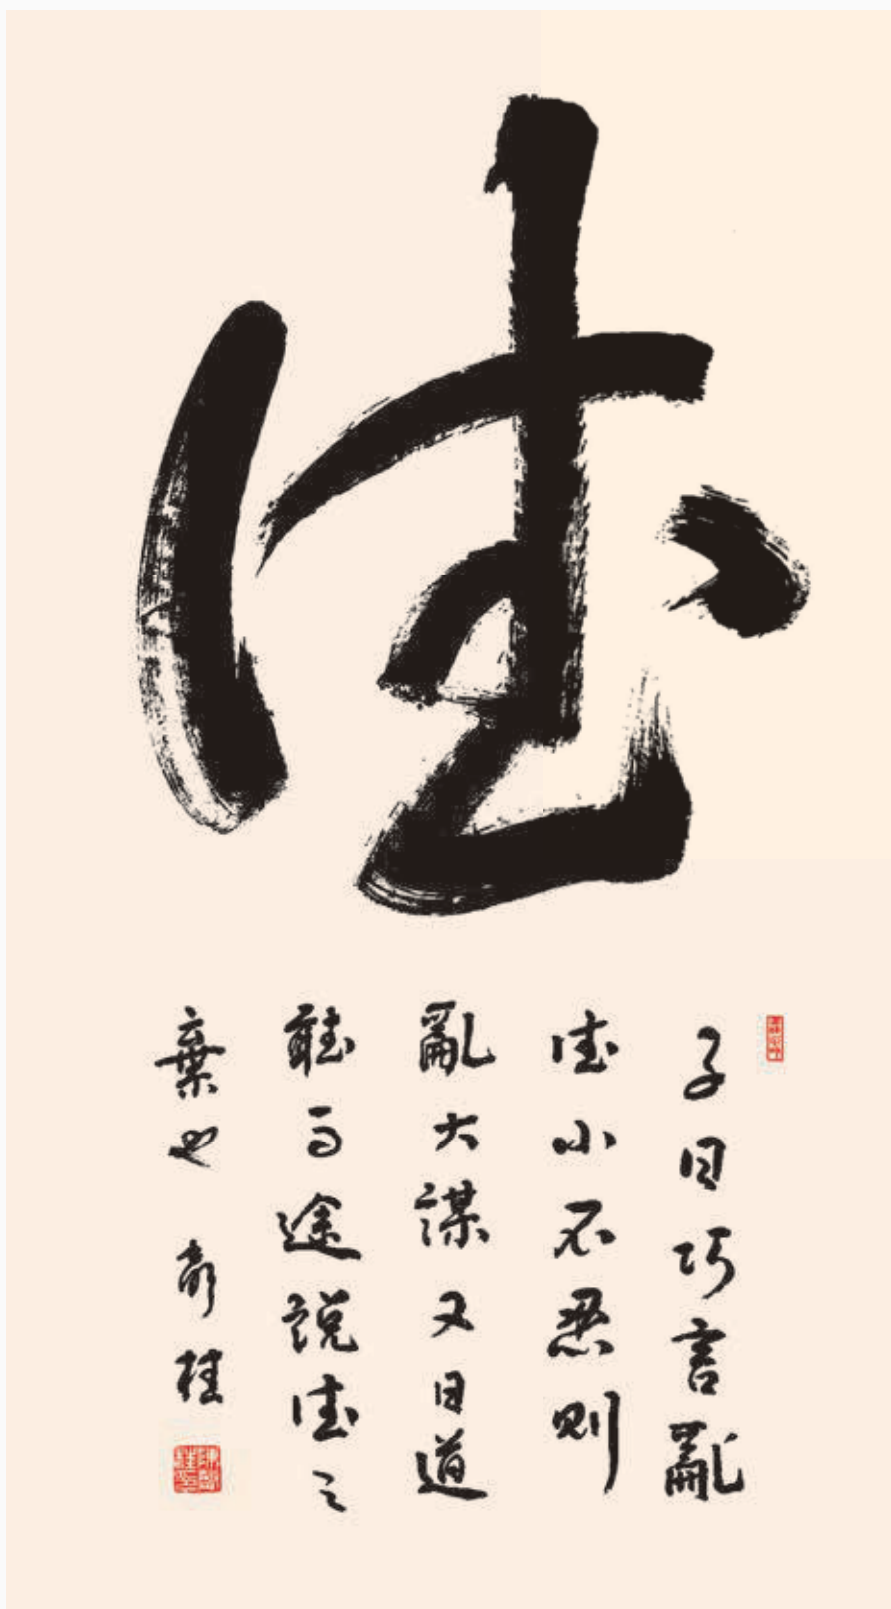 德
子曰巧言亂
德小不忍則
亂大謀又曰道
聽而途說德之
棄也 桂